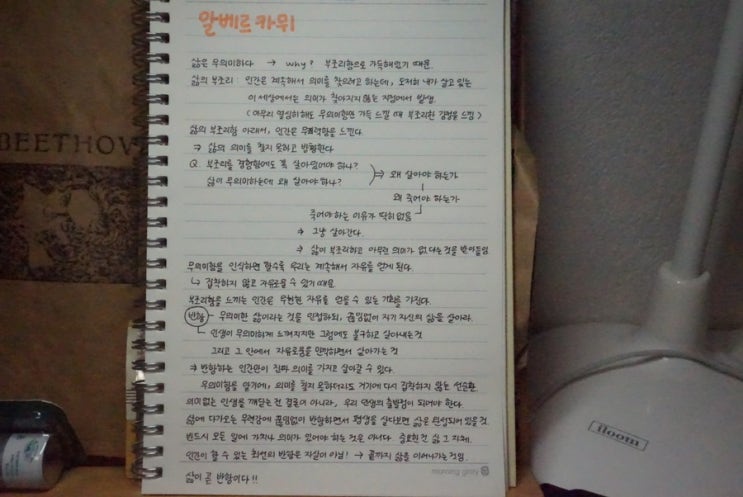 알베르 카뮈
삶은 무의미하다 → why? 부조리함으로 가득해있기 때문.
삶의 부조리 : 인간은 계속해서 의미를 찾으려고 하는데, 도저히 내가 살고 있는
이 세상에서는 의미가 찾아지지 않는 지점에서 발생.
(아무리 열심히해도 무의미함만 가득 느낄 때 부조리한 감정을 느낌)
삶의 부조리함 아래서, 인간은 무력함을 느낀다.
⇒ 삶의 의미를 찾지 못하고 방황한다
Q. 부조리를 경험함에도 꼭 살아있어야 하나?
삶이 무의미하는데 왜 살아야 하나?
⇒ 왜 살아야 하는가
왜 죽어야 하는가
죽어야 하는 이유가 딱히 없음
⇒ 그냥 살아간다.
⇒ 삶이 부조리하고 아무런 의미가 없다는 것을 받아들임
무의미함을 인식하면 할수록 우리는 계속해서 자유를 얻게 된다.
↳ 집착하지 않고 자유로울 수 있기 때문.
부조리함을 느끼는 인간은 무한한 자유를 얻을 수 있는 기회를 가진다.
반항 - 무의미한 삶이라는 것을 인정하되, 끊임없이 자기 자신의 삶을 살아라.
인생이 무의미하게 느껴지지만 그럼에도 불구하고 살아내는것
그리고 그 안에서 자유로움을 만끽하면서 살아가는 것
⇒ 반항하는 인간만이 진짜 의미를 가지고 살아갈 수 있다.
무의미함을 알기에, 의미를 찾지 못하더라도 거기에 다시 집착하지 않는 선순환.
의미없는 인생을 깨닫는건 결론이 아니라, 우리 인생의 출발점이 되어야 한다.
삶에 다가오는 무력감에 끊임없이 반항하면서 평생을 살다보면 삶은 완성되어 있을 것.
반드시 모든 일에 가치나 의미가 있어야 하는 것은 아니다. 중요한건 삶 그 자체.
인간이 할 수 있는 최선의 반항은 자살이 아님! → 끝까지 삶을 이어나가는 것임.
삶이 곧 반항이다!!
morning glory
BEETHOV
iloom